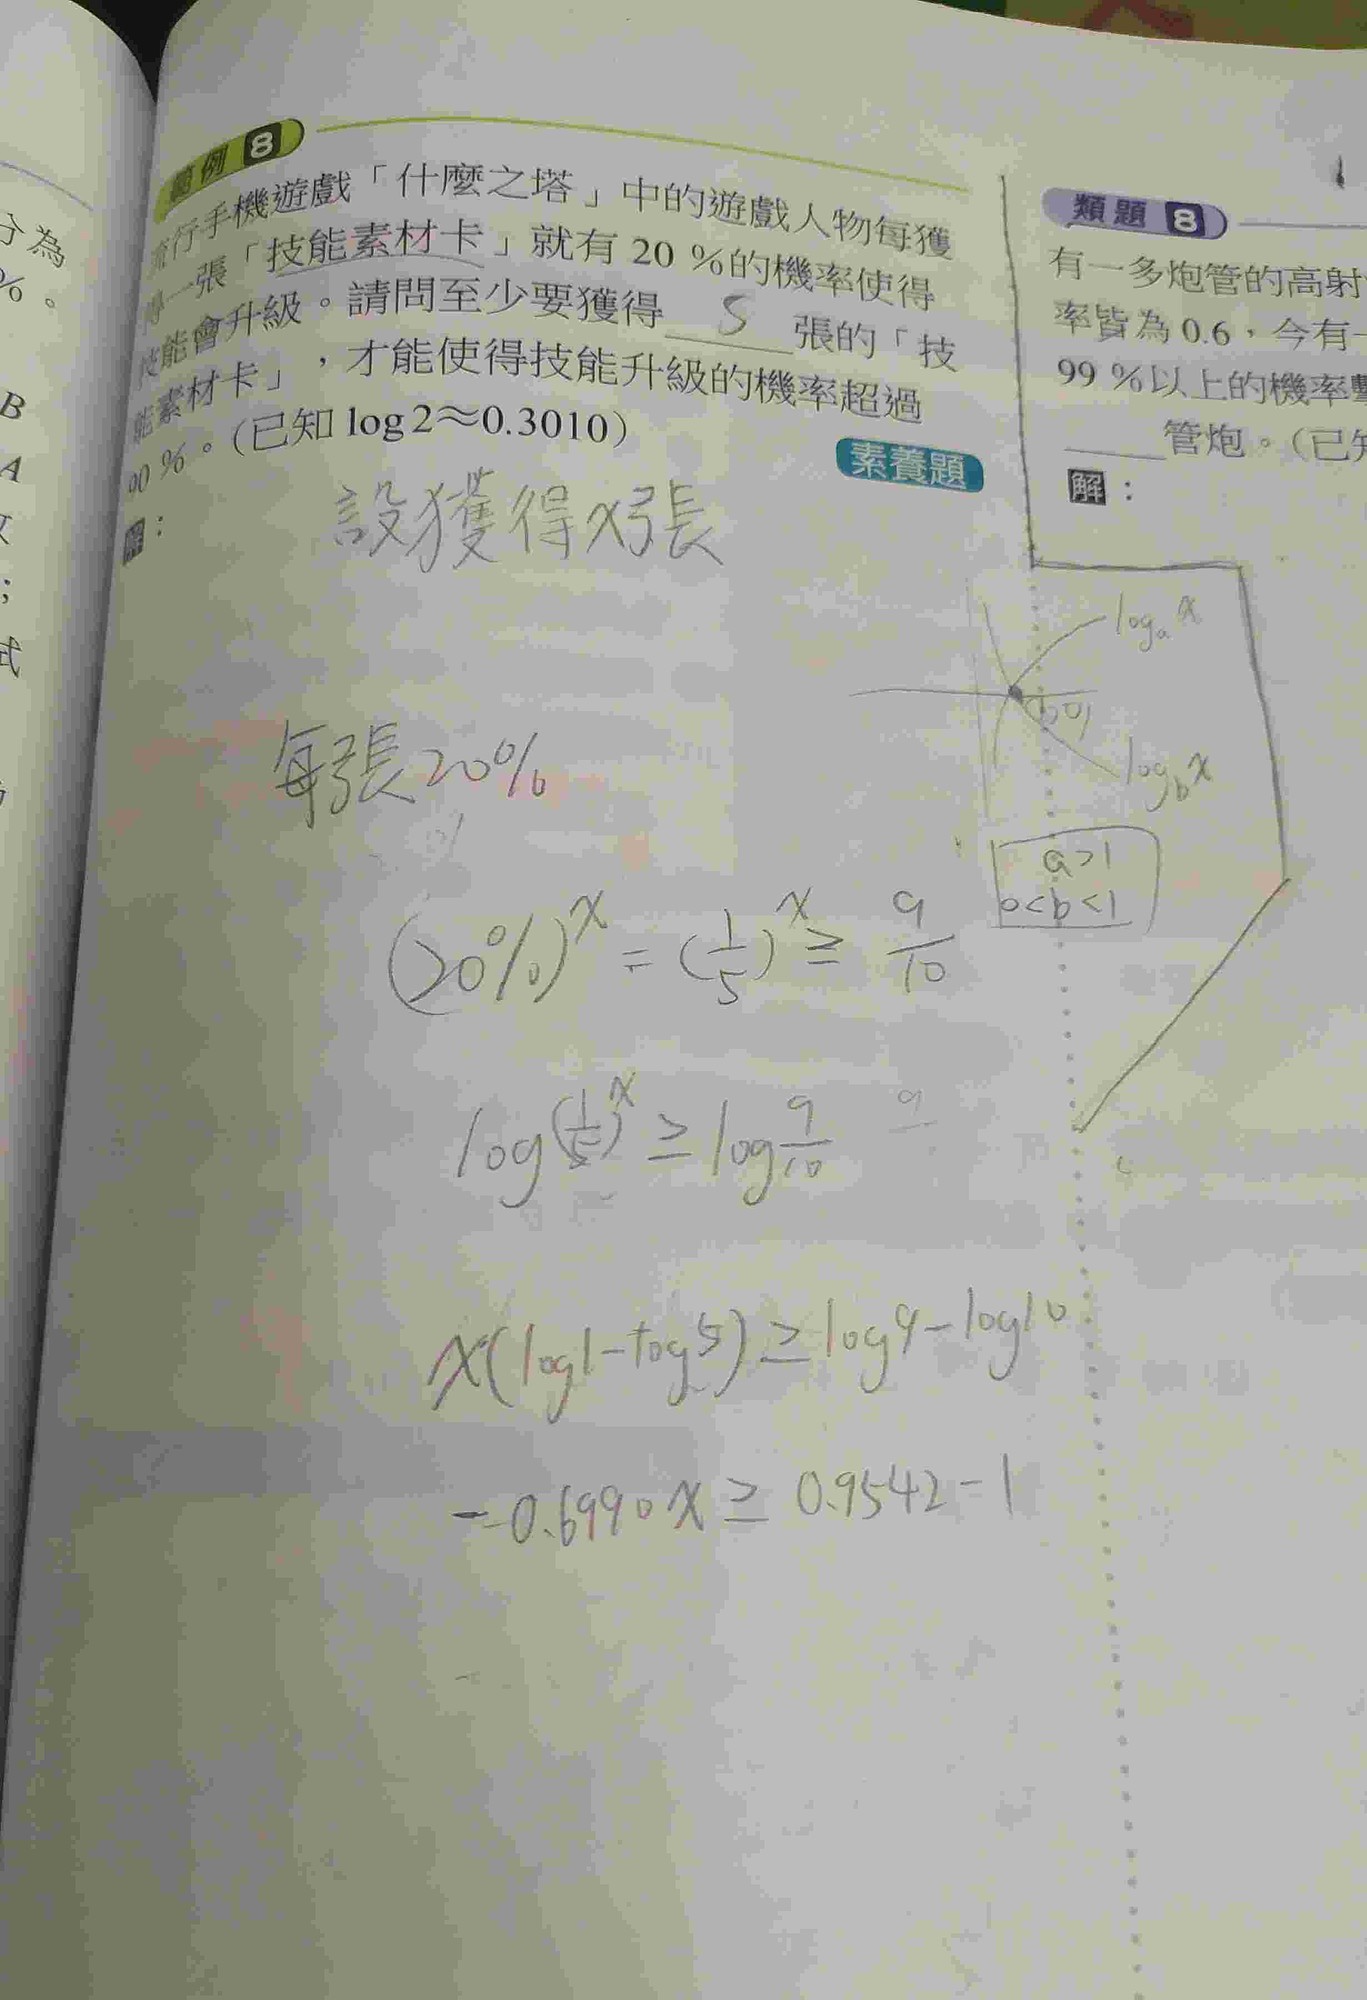 分為
%。
B
A
式
範例 8
流行手機遊戲「什麼之塔」中的遊戲人物每獲
得一張「技能素材卡」就有 20 %的機率使得
技能會升級。請問至少要獲得 5 張的「技
能素材卡」,才能使得技能升級的機率超過
90 %。(已知 log 2≈0.3010)
素養題
解:
設獲得x張
每張20%
(20%)^x = (1/5)^x ≥ 9/10
log(1/5)^x ≥ log 9/10
x(log1-log5) ≥ log9-log10
-0.6990x ≥ 0.9542-1
log_a x
log_b x
a>1
0<b<1
類題 8
有一多炮管的高射
率皆為 0.6,今有一
99 %以上的機率擊
管炮。(已知
解: